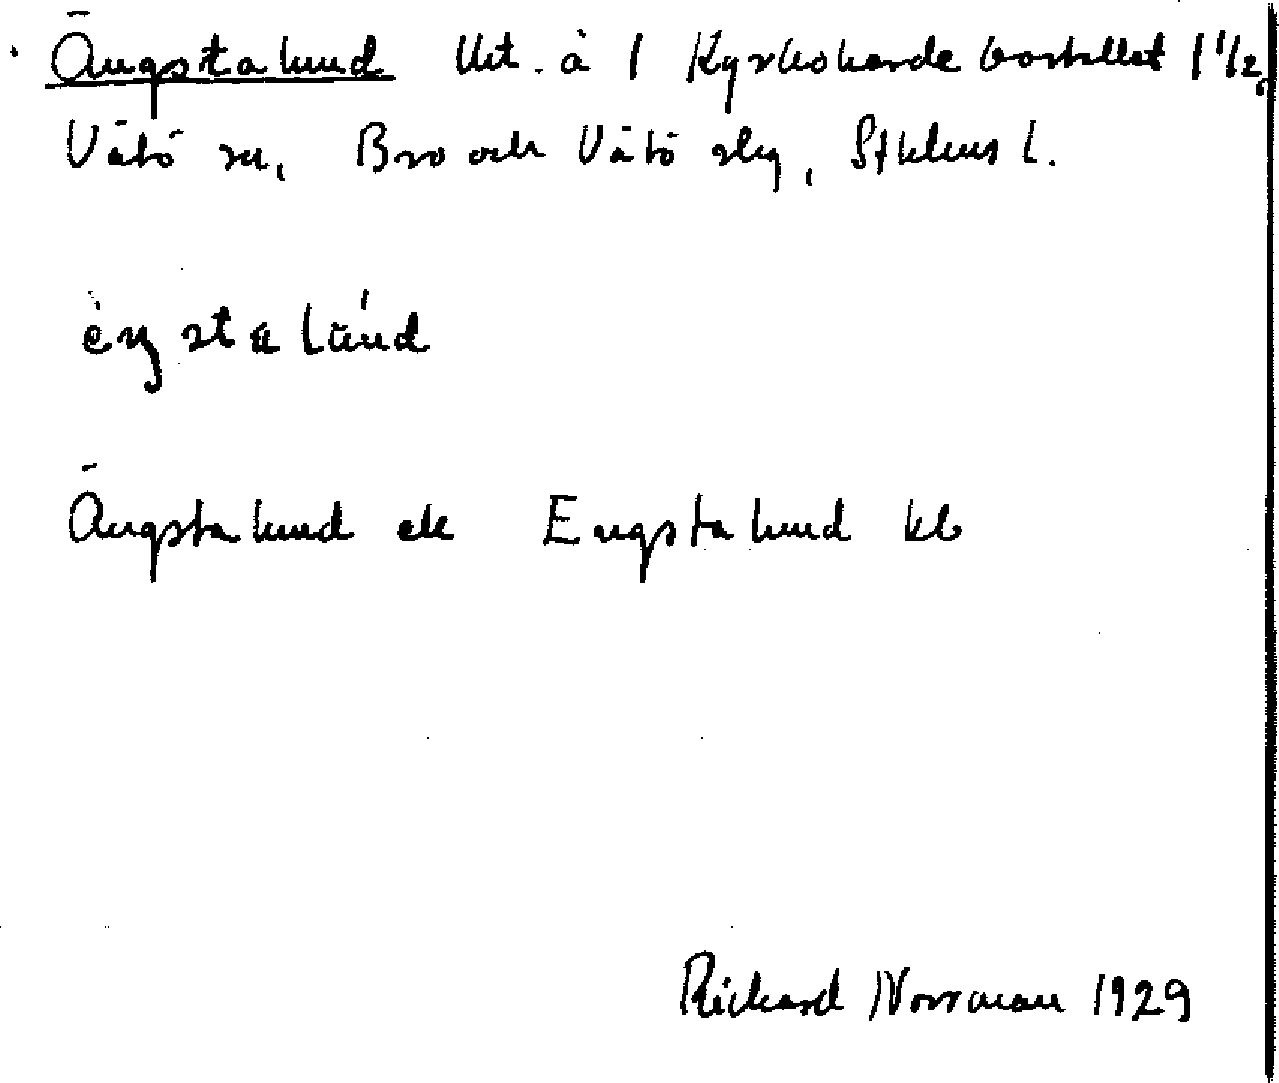 Ängstalund Ut. å 1 Kyrkoherdebostället 1 1/2,
Vätö sn, Bro och Vätö skg, Sthlms l.
èŋstalúnd
Ängstalund ek Engstalund kb
Rickard Norrman 1929